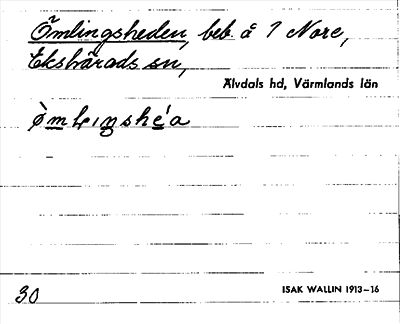 Ömlingsheden, beb. å 7 Nore,
Ekshärads sn,
Älvdals hd, Värmlands län
30
ISAK WALLIN 1913-16